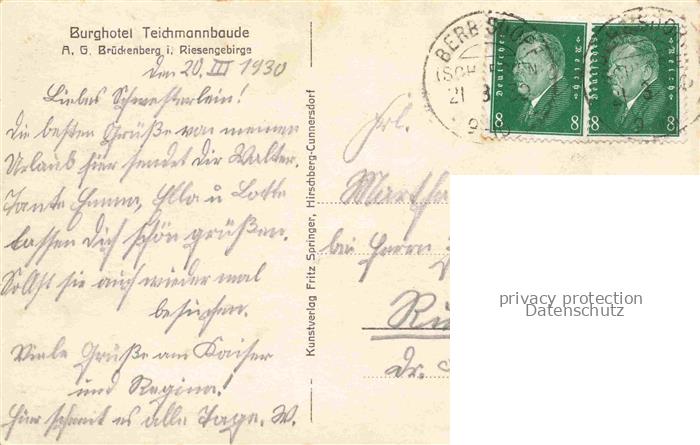 Burghotel Teichmannbaude
A. G. Brückenberg i. Riesengebirge
Den 20. III 1930
Liebes Schwesterlein!
Die besten Grüße von meinem
Urlaub hier sendet dir Walter.
Tante Emma, Ella u Lotte
lassen Dich schön grüßen.
Sollst sie auch wieder mal
besuchen.
Viele Grüße am Kaiser
und Regina!
Hier schneit es alle Tage. W.
Kunstverlag Fritz Springer, Hirschberg-Cunnersdorf
Frl.
Martha
bei Herrn
Dr.
Deutsches Reich
8 8
Deutsches Reich
8 8
21
privacy protection
Datenschutz